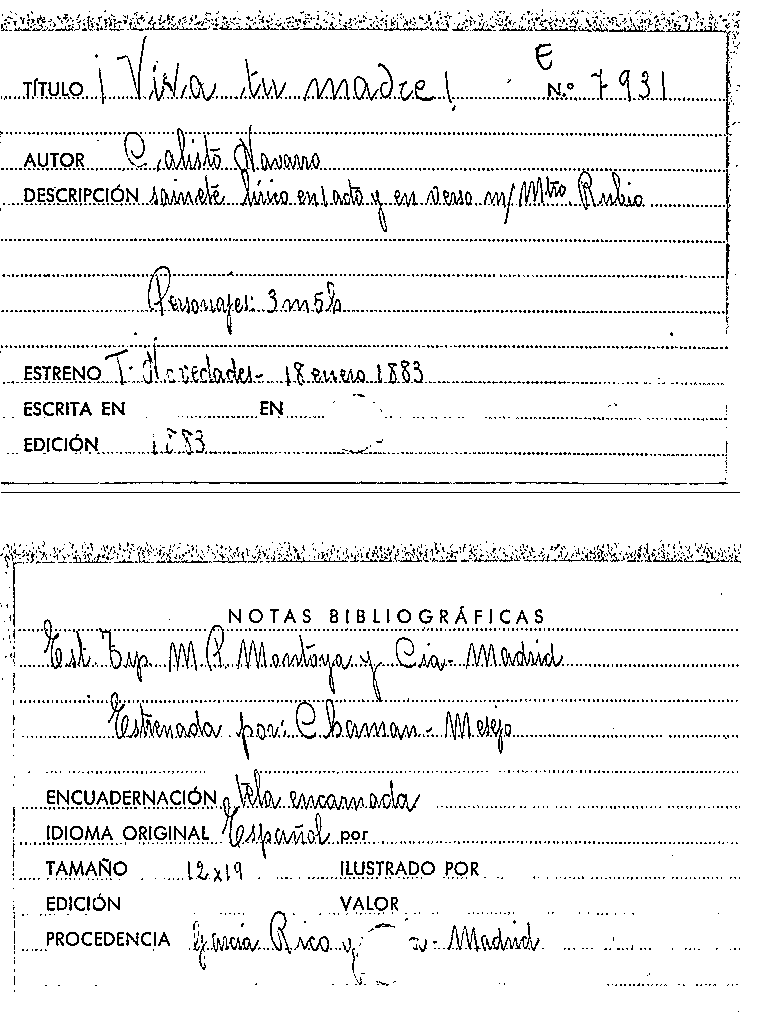 E
TÍTULO ¡Viva tu madre! N.º 7931
AUTOR Calisto Navarro
DESCRIPCIÓN sainete lírico en 1 acto y en verso m/ Mtro. Rubio
Personajes: 3 m 5 h
ESTRENO T. Novedades - 18 enero 1883
ESCRITA EN EN
EDICIÓN 1883
NOTAS BIBLIOGRÁFICAS
Est. Tip. M. P. Montoya y Cía - Madrid
Estrenada por: Chaman - Mesejo
ENCUADERNACIÓN tela encarnada
IDIOMA ORIGINAL Español por
TAMAÑO 12x19 ILUSTRADO POR
EDICIÓN VALOR
PROCEDENCIA García Rico y - Madrid